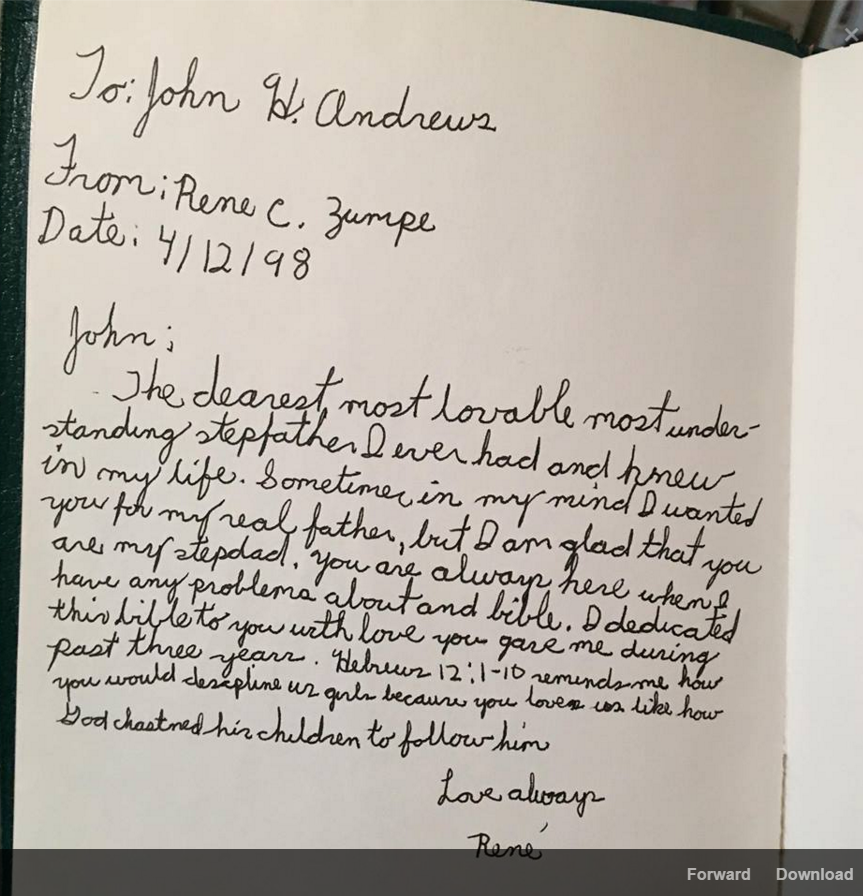 To: John H. Andrews
From; Rene C. Zumpe
Date: 4/12/98
John;
The dearest most lovable most under-
standing stepfather I ever had and knew
in my life. Sometimes in my mind I wanted
you for my real father, but I am glad that you
are my stepdad. You are always here when I
have any problems about and bible. I dedicated
this bible to you with love you gave me during
past three years. Hebrews 12:1-10 reminds me how
you would descpline us girls because you loves us like how
God chastned his children to follow him
Love always
René
Forward Download